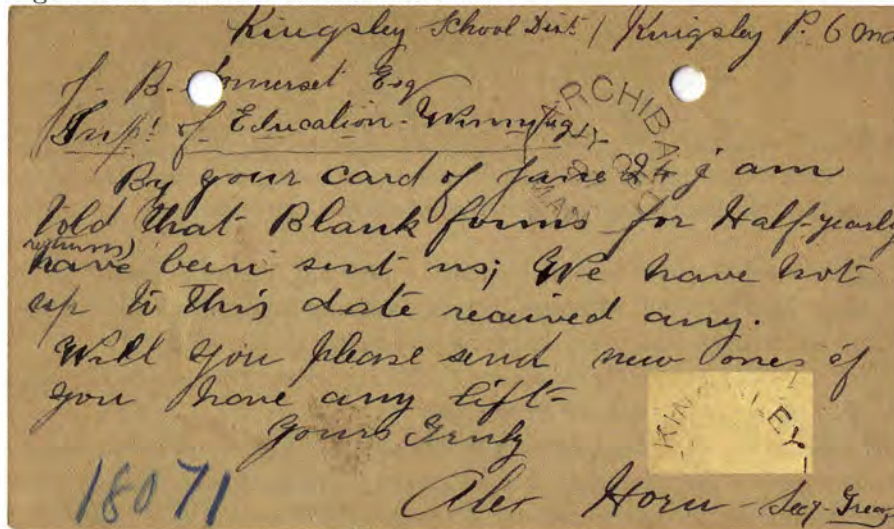 Kingsley School Dist / Kingsley P. O
J. B. Somerset Esq
Supt of Education - Winnipeg
By your card of June 24 I am
told that Blank forms for Half-yearly
returns)
have been sent us; We have not
up to this date received any.
Will you please send new ones if
you have any left -
Yours Truly
Alex Horn - Secy - Treas
18071
ARCHIBALD
MAN
KIN LEY